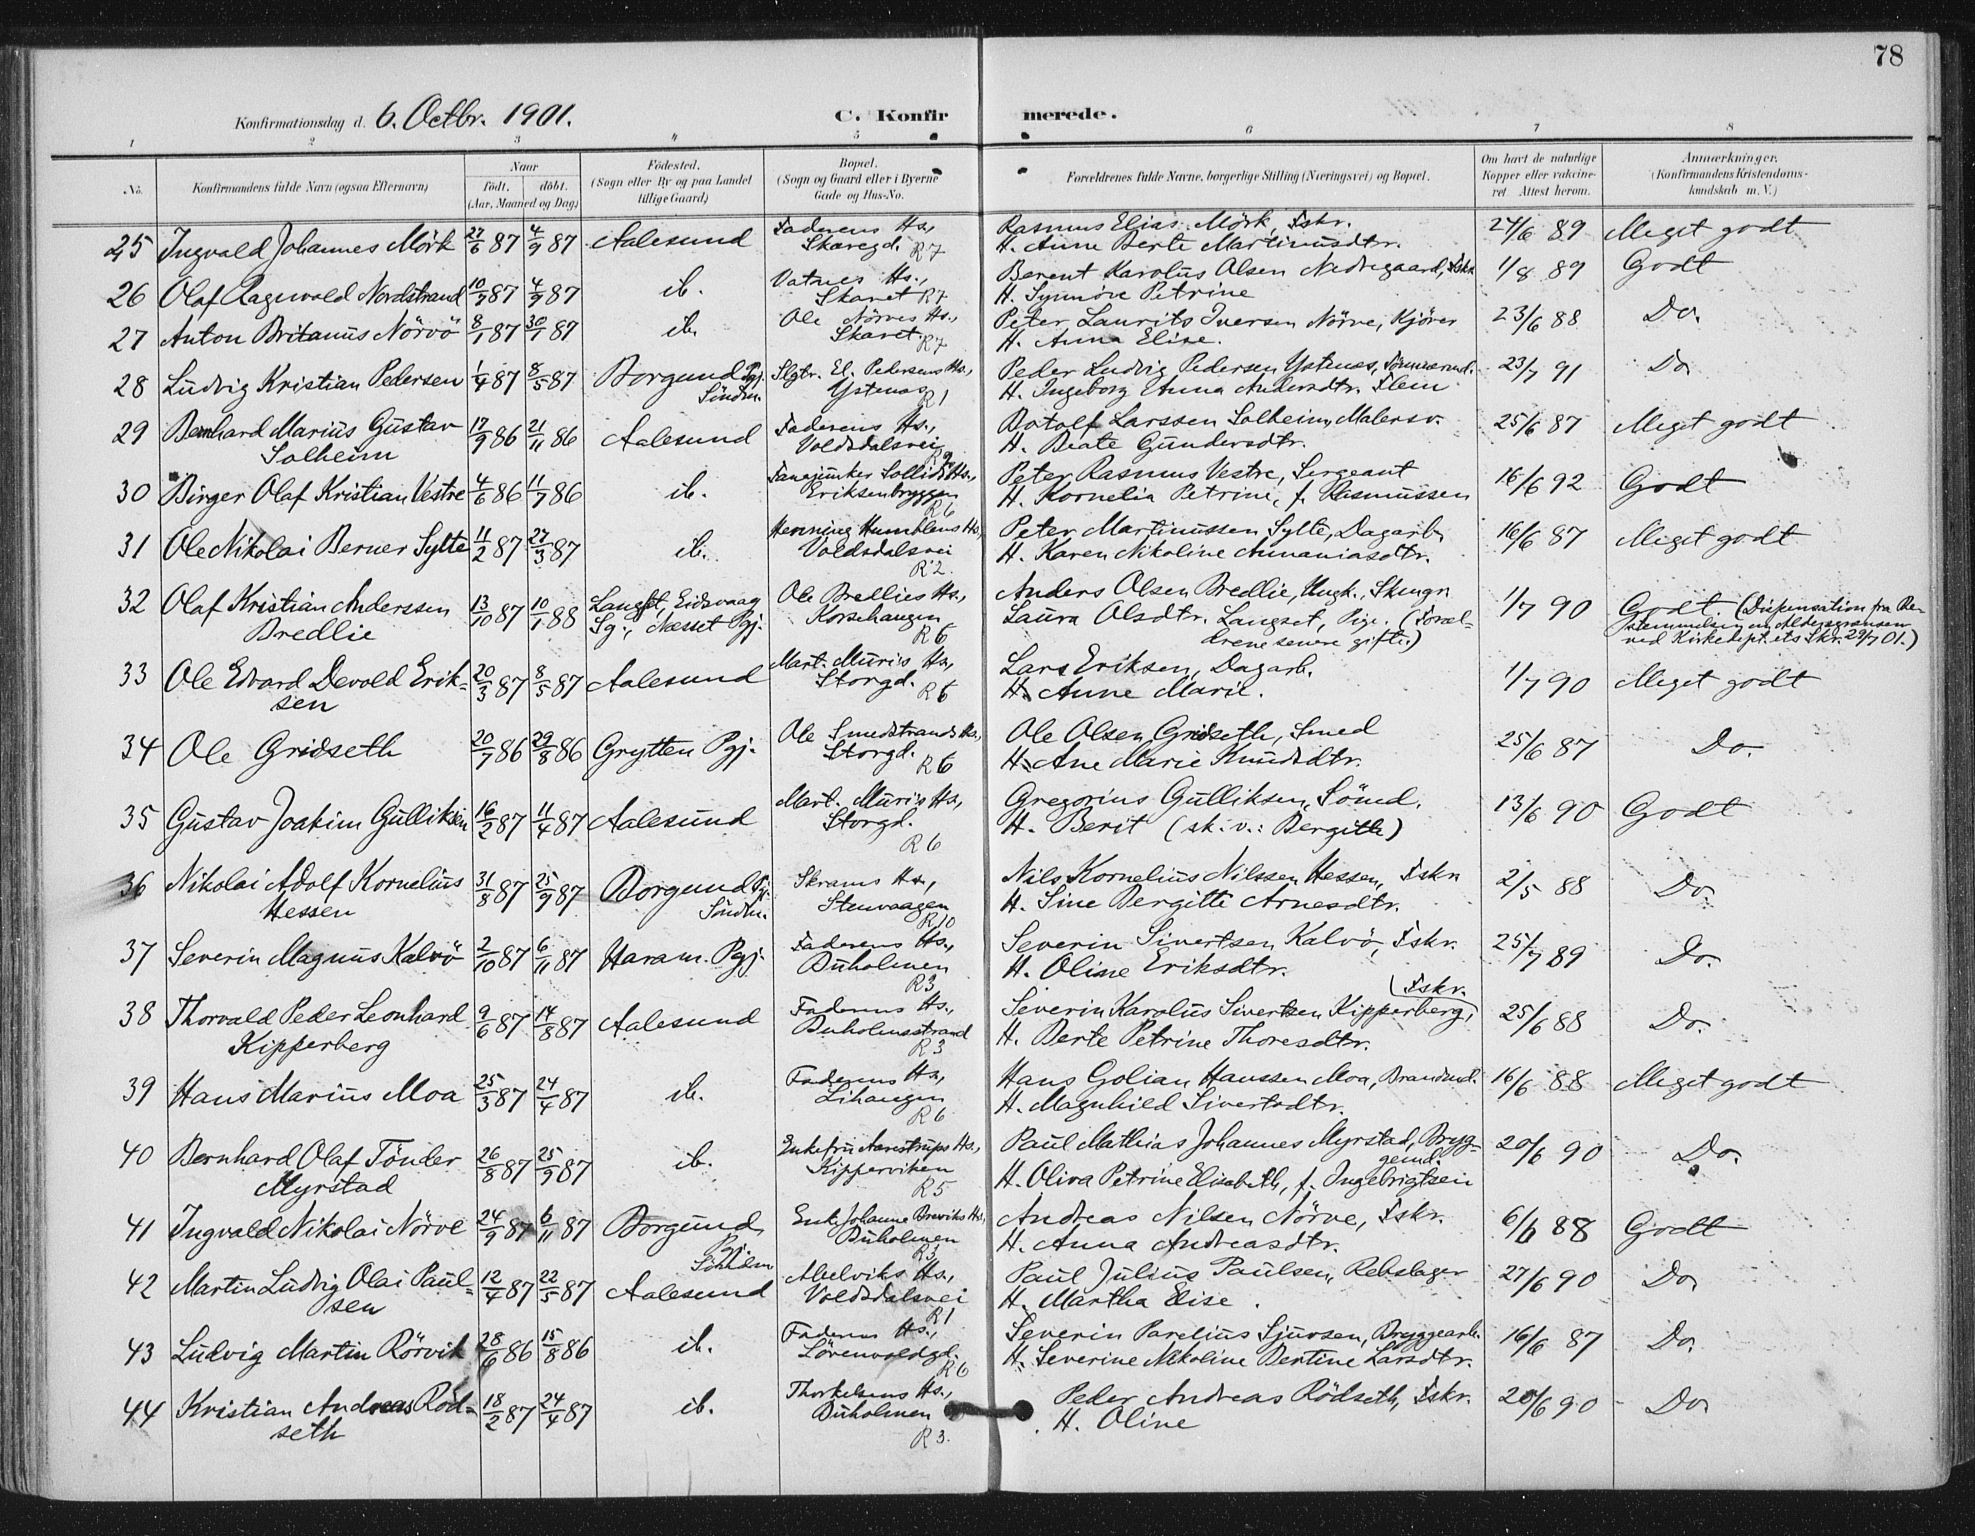 78
Konfirmationsdag d. 6. Octbr. 1901. C. Konfirmerede.
1 2 3 4 5 6 7 8
No. Konfirmandens fulde Navn (ogsaa Efternavn)
Naar
født. døbt.
(Aar, Maaned og Dag)
Fødested.
(Sogn eller By og paa Landet
tillige Gaard)
Bopæl.
(Sogn og Gaard eller i Byerne
Gade og Hus-No.
Forældrenes fulde Navne, borgerlige Stilling (Næringsvei) og Bopæl.
Om havt de naturlige
Kopper eller vakcineret.
Attest herom.
Anmærkninger.
(Konfirmandens Kristendomskundskab
m. V.)
25 Ingvald Johannes Mörk 27/6 87 4/9 87 Aalesund Faderens Hs., Rasmus Elias Mörk, Fskr. 24/6 89 Meget godt
Skaregd. R7 H. Anne Berte Martinusdtr.
26 Olaf Ragnvald Nordstrand 10/7 87 4/9 87 ib. Vatnes Hs., Berent Karolus Olsen Nedregaard, Fskr 1/8 89 Godt
Skaret R7 H. Synnöve Petrine
27 Anton Britanus Nörvö 8/1 87 30/1 87 ib. Ole Nörves Hs., Peter Laurits Iversen Nörve, Kjörer 23/6 88 Do.
Skaret. R7 H. Anna Elise.
28 Ludvig Kristian Pedersen 1/4 87 8/5 87 Borgund Pgj. Slgtr. El. Pedersens Hs., Peder Ludvig Pedersen Ystenæs, 23/7 91 Do.
Söndm. Ystenæs R1 H. Ingeborg Anna Andersdtr. Flem
29 Bernhard Marius Gustav 17/9 86 21/11 86 Aalesund Faderens Hs., Botolf Larssen Solheim, Malersv. 25/6 87 Meget godt
Solheim Voldsdalsvei R2 H. Beate Gundersdtr.
30 Birger Olaf Kristian Vestre 4/6 86 11/7 86 ib. Fanejunker Sollids Hs., Peter Rasmus Vestre, Sergeant 16/6 92 Godt
Eriksenbryggen R6 H. Kornelia Petrine, f. Rasmussen
31 Ole Nikolai Berner Sylte 11/2 87 27/3 87 ib. Henning Humblens Hs., Peter Martinussen Sylte, Dagarb. 16/6 87 Meget godt
Voldsdalsvei R2. H. Karen Nikoline Annaniasdtr.
32 Olaf Kristian Anderssen 13/10 87 10/1 88 Langset, Eidsvaag Ole Bredlies Hs., Anders Olsen Bredlie, Ungk., 1/7 90 Godt. (Dispensation fra Be-
Bredlie Sg., Næsset Pgj. Korsehaugen R6 Laura Olsdtr. Langset, Pige. (Foræl- stemmelsen om Aldersgrænsen
drene senere gifte.) ved Kirkedept.ets Skr. 29/7 01.)
33 Ole Edvard Devold Erik- 20/3 87 8/5 87 Aalesund Mart. Muris Hs., Lars Eriksen, Dagarb. 1/7 90 Meget godt
sen Storgd. R6 H. Anne Marie.
34 Ole Gridseth 20/7 86 29/8 86 Grytten Pgj. Ole Smedstrands Hs., Ole Olsen Gridseth, Smed 25/6 87 Do.
Storgd. R6 H. Ane Marie Knudsdtr.
35 Gustav Joakim Gulliksen 16/2 87 11/4 87 Aalesund Mart. Muris Hs., Gregorius Gulliksen, Sömd. 13/6 90 Godt
Storgd. R6 H. Berit (sk. v.: Bergitte)
36 Nikolai Adolf Kornelius 31/8 87 25/9 87 Borgund Pgj. Skrams Hs., Nils Kornelius Nilssen Hessen, Fskr 2/5 88 Do.
Hessen Söndm. Stenvaagen R10 H. Sine Bergitte Arnesdtr.
37 Severin Magnus Kalvö 2/10 87 6/11 87 Haram. Pgj. Faderens Hs., Severin Sivertsen Kalvö, Fskr. 25/7 89 Do.
Buholmen R3 H. Oline Eriksdtr.
38 Thorvald Peder Leonhard 9/6 87 14/8 87 Aalesund Faderens Hs., Severin Karolus Sivertsen Kipperberg, Fskr. 25/6 88 Do.
Kipperberg Buholmsstrand R3 H. Berte Petrine Thoresdtr.
39 Hans Marius Moa 25/3 87 24/4 87 ib. Faderens Hs., Hans Golian Hanssen Moa, Brandmd. 16/6 88 Meget godt
Lihaugen R6 H. Magnhild Sivertsdtr.
40 Bernhard Olaf Tönder 26/8 87 25/9 87 ib. Enkefru Aarestrups Hs., Paul Mathias Johannes Myrstad, Bryg- 20/6 90 Do.
Myrstad Kipperviken R5 gemd.
H. Oliva Petrine Elisabeth, f. Ingebrigtsen
41 Ingvald Nikolai Nörve 24/9 87 6/11 87 Borgund Enke Johanne Breviks Hs., Andreas Nilsen Nörve, Fskr. 6/6 88 Godt
Pgj. Söndm Buholmen R3 H. Anna Andreasdtr.
42 Martin Ludvig Olai Paul- 12/4 87 22/5 87 Aalesund Abelviks Hs., Paul Julius Paulsen, Rebslager 27/6 90 Do.
sen Voldsdalsvei R1 H. Martha Elise.
43 Ludvig Martin Rörvik 28/6 86 15/8 86 ib. Faderens Hs., Severin Parelius Sjursen, Bryggearb. 16/6 87 Do.
Lövenvoldgd. R6 H. Severine Nikoline Bertine Larsdtr.
44 Kristian Andreas Röd- 18/2 87 24/4 87 ib. Thorkelsens Hs., Peder Andreas Rödseth, Fskr. 20/6 90 Do.
seth Buholmen R3. H. Oline